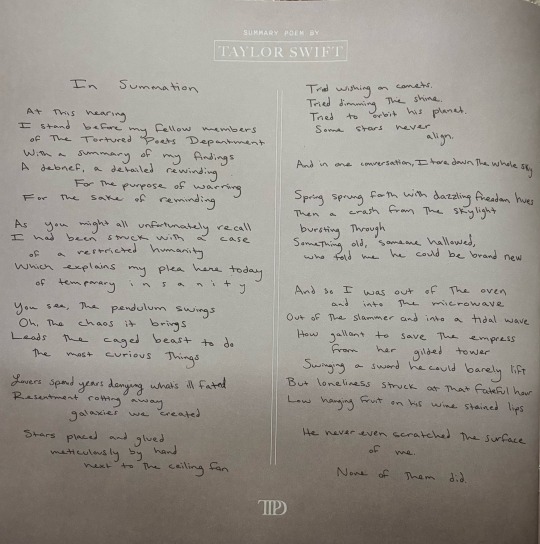 SUMMARY POEM BY
TAYLOR SWIFT
In Summation
At this hearing
I stand before my fellow members
of The Tortured Poets Department
With a summary of my findings
A debrief, a detailed rewinding
For the purpose of warning
For the sake of reminding
As you might all unfortunately recall
I had been struck with a case
of a restricted humanity
Which explains my plea here today
of temporary insanity
You see, the pendulum swings
Oh, the chaos it brings
Leads the caged beast to do
the most curious things
Lovers spend years denying whats ill fated
Resentment rotting away
galaxies we created
Stars placed and glued
meticulously by hand
next to the ceiling fan
Tried wishing on comets.
Tried dimming the shine.
Tried to orbit his planet.
Some stars never
align.
And in one conversation, I tore down the whole sky
Spring sprung forth with dazzling freedom hues
Then a crash from the skylight
bursting through
Something old, someone hallowed,
who told me he could be brand new
And so I was out of the oven
and into the microwave
Out of the slammer and into a tidal wave
How gallant to save the empress
from her gilded tower
Swinging a sword he could barely lift
But loneliness struck at that fateful hour
Low hanging fruit on his wine stained lips
He never even scratched the surface
of me.
None of them did.
TTPD